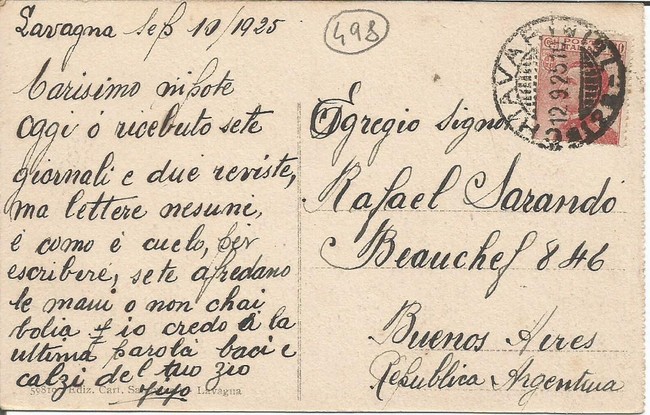 Lavagna Seb 10/1925
498
Carisimo nipote
oggi ó ricebuto sete
giornali e due reviste,
ma lettere nesuni,
é como é cuelo, per
escribere, sete afredano
le mani o non chai
bolia io credo di la
ultima parola baci e
calzi del tuo zio
Egregio Signor
Rafael Sarandó
Beauchef 846
Buenos Aires
Republica Argentina
12.9.25
Ediz. Cart. Lavagna